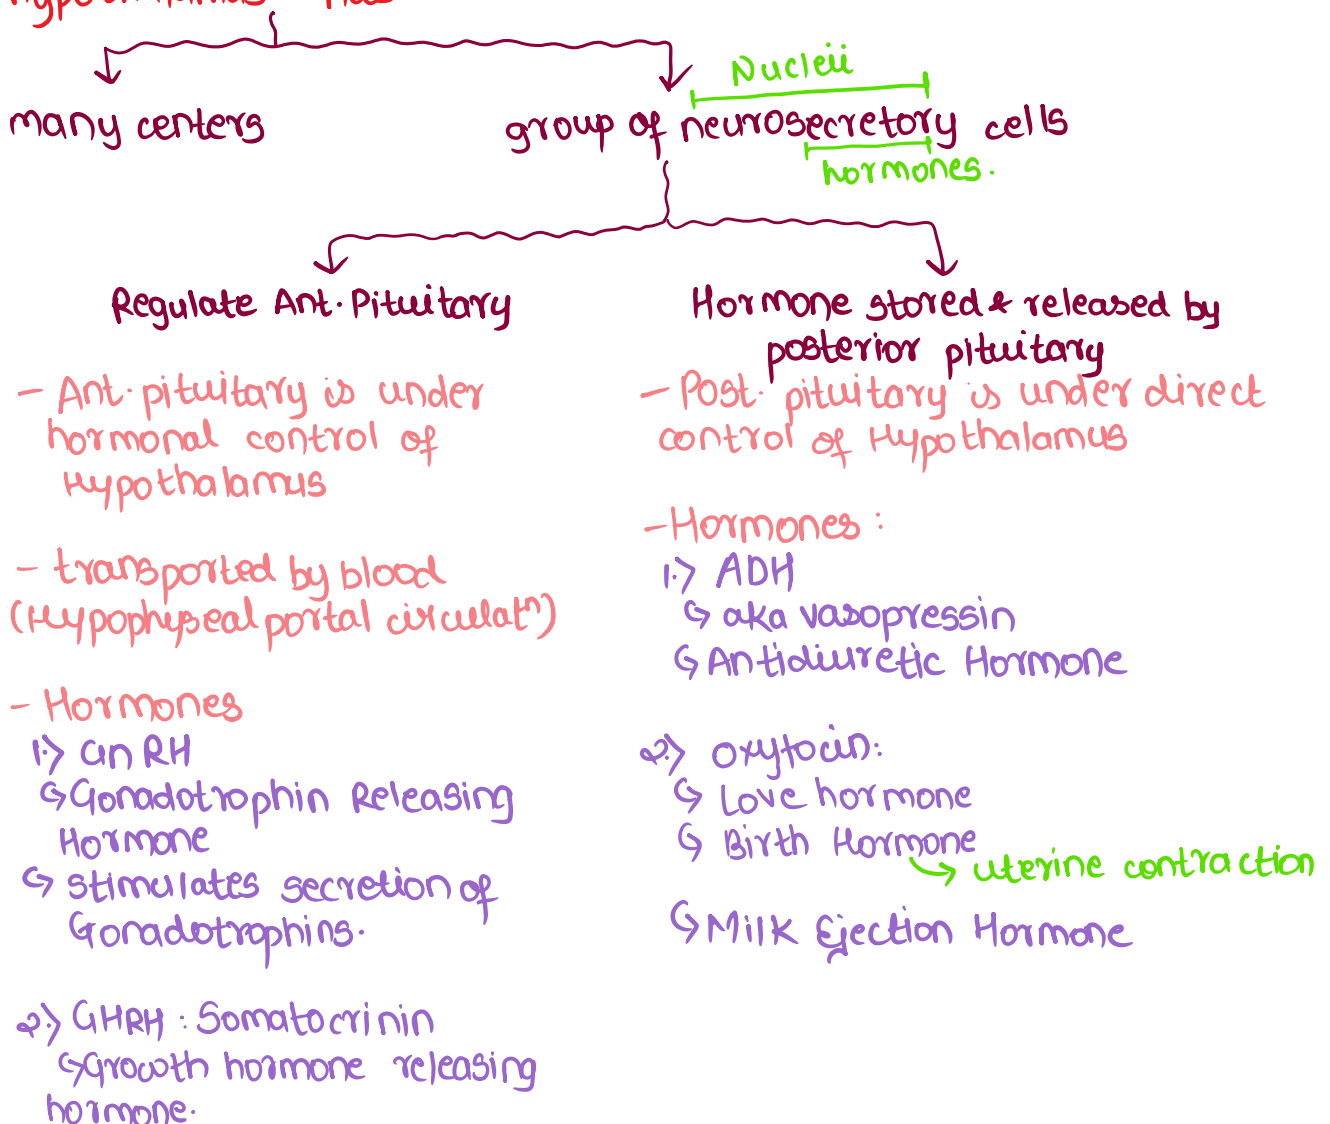 many centers
Nucleii
group of neurosecretory cells
hormones.
Regulate Ant. Pituitary
- Ant. pituitary is under
hormonal control of
Hypothalamus
- transported by blood
(Hypophyseal portal circulatⁿ)
- Hormones
1.> GnRH
↳ Gonadotrophin Releasing
Hormone
↳ stimulates secretion of
Gonadotrophins.
2.> GHRH : Somatocrinin
↳ Growth hormone releasing
hormone.
Hormone stored & released by
posterior pituitary
- Post. pituitary is under direct
control of Hypothalamus
- Hormones :
1.> ADH
↳ aka vasopressin
↳ Antidiuretic Hormone
2.> Oxytocin:
↳ Love hormone
↳ Birth Hormone
↳ uterine contraction
↳ Milk Ejection Hormone